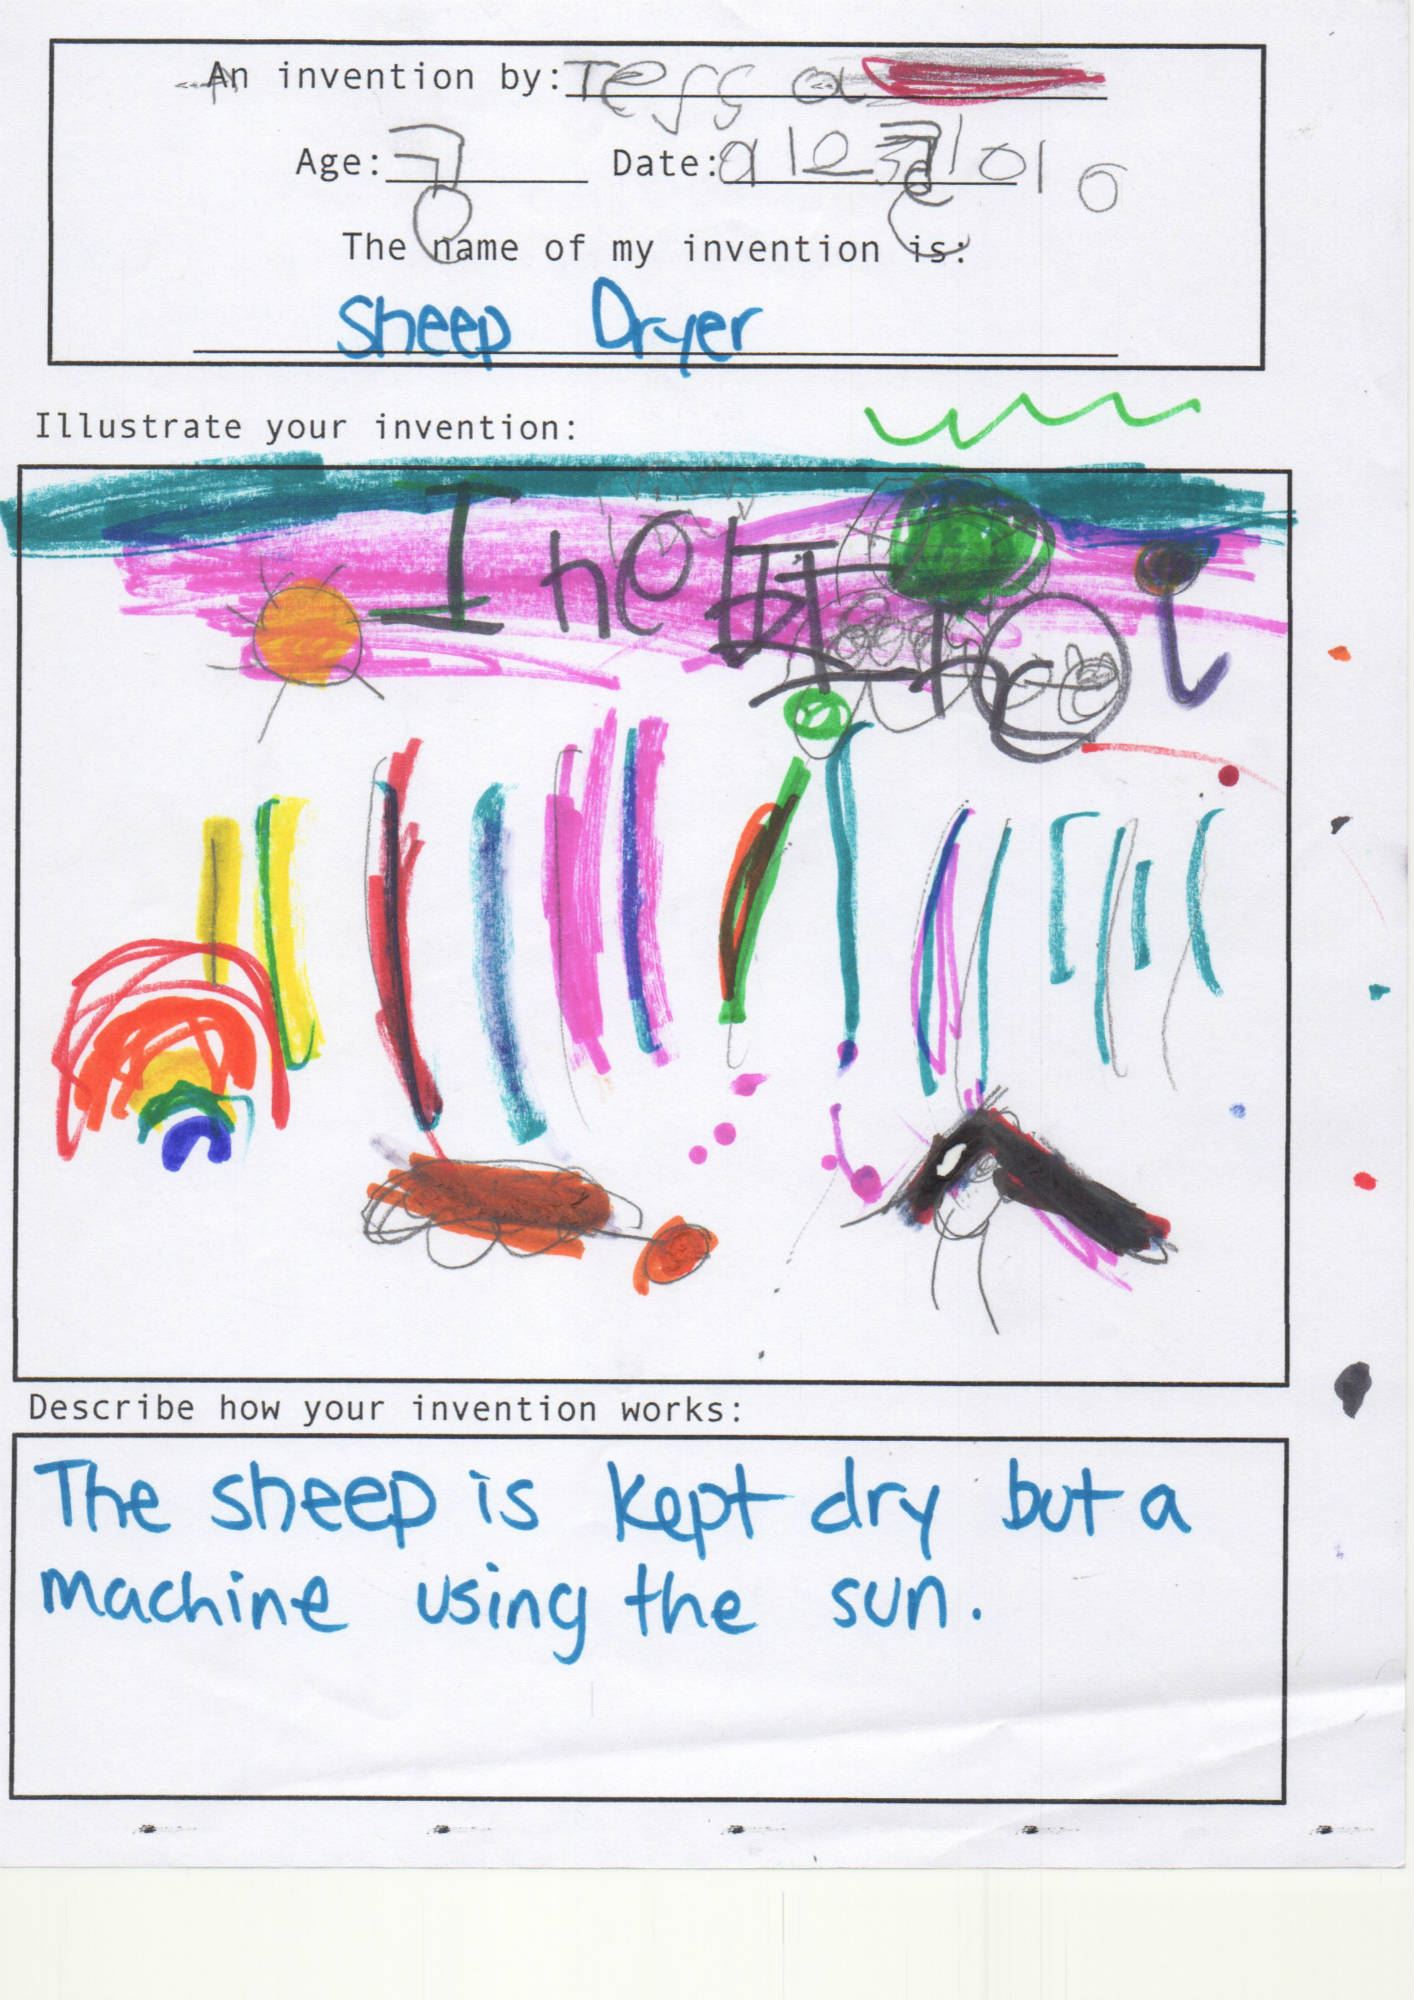 An invention by: Tessa
Age: 7 Date:
The name of my invention is:
Sheep Dryer
Illustrate your invention:
Describe how your invention works:
The sheep is kept dry but a
machine using the sun.